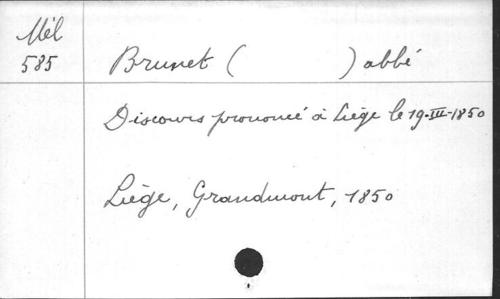 Mél
585
Brunet ( ) abbé
Discours prononcé à Liège le 19-III-1850
Liège, Grandmont, 1850